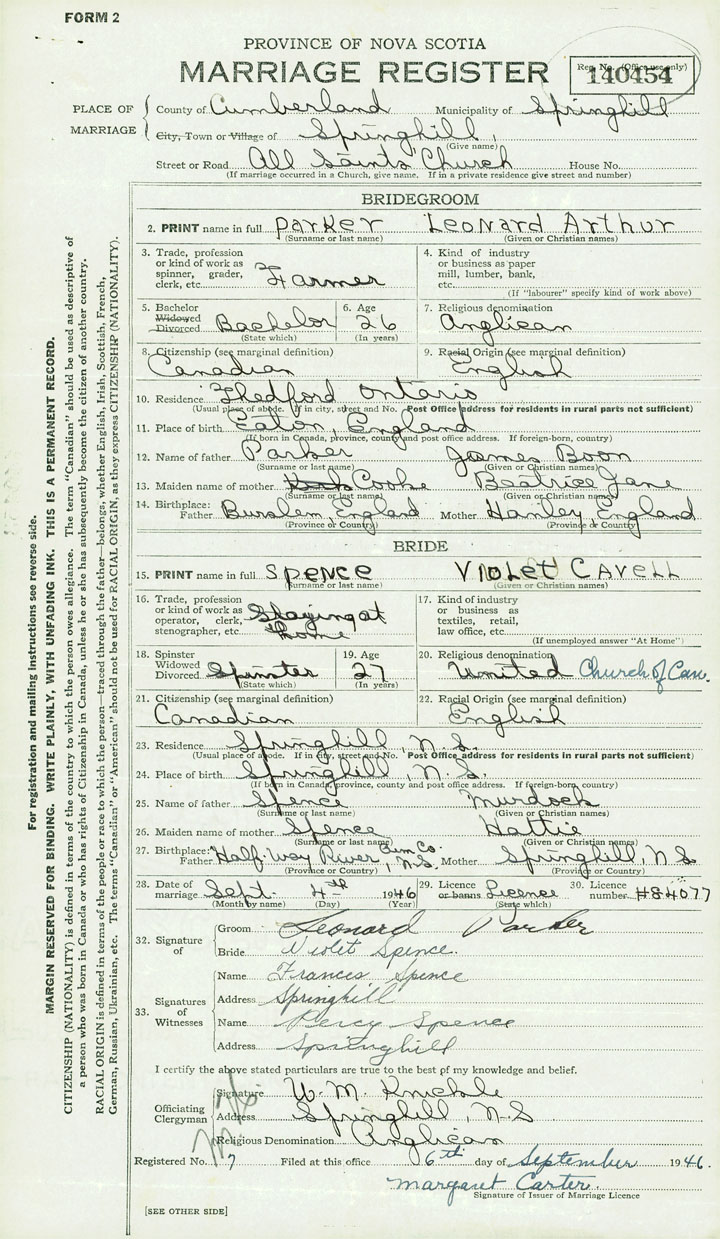 FORM 2
PROVINCE OF NOVA SCOTIA
MARRIAGE REGISTER
Reg. No. (Office use only)
140454
PLACE OF MARRIAGE
County of Cumberland Municipality of Springhill
City, Town or Village of Springhill,
(Give name)
Street or Road All Saints' Church House No.
(If marriage occurred in a Church, give name. If in a private residence give street and number)
BRIDEGROOM
2. PRINT name in full Parker Leonard Arthur
(Surname or last name) (Given or Christian names)
3. Trade, profession or kind of work as spinner, grader, clerk, etc. Farmer
4. Kind of industry or business as paper mill, lumber, bank, etc.
(If "labourer" specify kind of work above)
5. Bachelor Widowed Divorced Bachelor
(State which)
6. Age 26
(In years)
7. Religious denomination
Anglican
8. Citizenship (see marginal definition)
Canadian
9. Racial Origin (see marginal definition)
English
10. Residence Thedford Ontario
(Usual place of abode. If in city, street and No. Post Office address for residents in rural parts not sufficient)
11. Place of birth Eaton, England
(If born in Canada, province, county and post office address. If foreign-born, country)
12. Name of father Parker James Boon
(Surname or last name) (Given or Christian names)
13. Maiden name of mother Cooke Beatrice Jane
(Surname or last name) (Given or Christian names)
14. Birthplace: Father Burslem, England Mother Hanley, England
(Province or Country) (Province or Country)
BRIDE
15. PRINT name in full Spence Violet Cavell
(Surname or last name) (Given or Christian names)
16. Trade, profession or kind of work as operator, clerk, stenographer, etc. Staying at home
17. Kind of industry or business as textiles, retail, law office, etc.
(If unemployed answer "At Home")
18. Spinster Widowed Divorced Spinster
(State which)
19. Age 27
(In years)
20. Religious denomination
United Church of Can.
21. Citizenship (see marginal definition)
Canadian
22. Racial Origin (see marginal definition)
English
23. Residence Springhill, N.S.
(Usual place of abode. If in city, street and No. Post Office address for residents in rural parts not sufficient)
24. Place of birth Springhill, N.S.
(If born in Canada, province, county and post office address. If foreign-born, country)
25. Name of father Spence Murdock
(Surname or last name) (Given or Christian names)
26. Maiden name of mother Spence Hattie
(Surname or last name) (Given or Christian names)
27. Birthplace: Father Half-way River, Cum Co. N.S. Mother Springhill, N.S
(Province or Country) (Province or Country)
28. Date of marriage Sept. 4th 1946
(Month by name) (Day) (Year)
29. Licence or banns Licence
(State which)
30. Licence number #84077
32. Signature of
Groom Leonard Parker
Bride Violet Spence.
33. Signatures of Witnesses
Name Frances Spence
Address Springhill
Name Percy Spence
Address Springhill
I certify the above stated particulars are true to the best of my knowledge and belief.
Officiating Clergyman
Signature W. M.
Address Springhill, N.S
Religious Denomination Anglican
Registered No. 7 Filed at this office 6th day of September 1946.
Margaret Carter.
Signature of Issuer of Marriage Licence
[SEE OTHER SIDE]
For registration and mailing instructions see reverse side.
MARGIN RESERVED FOR BINDING. WRITE PLAINLY, WITH UNFADING INK. THIS IS A PERMANENT RECORD.
CITIZENSHIP (NATIONALITY) is defined in terms of the country to which the person owes allegiance. The term "Canadian" should be used as descriptive of
a person who was born in Canada or who has rights of Citizenship in Canada, unless he or she has subsequently become the citizen of another country.
RACIAL ORIGIN is defined in terms of the people or race to which the person—traced through the father—belongs, whether English, Irish, Scottish, French,
German, Russian, Ukrainian, etc. The terms "Canadian" or "American" should not be used for RACIAL ORIGIN, as they express CITIZENSHIP (NATIONALITY).